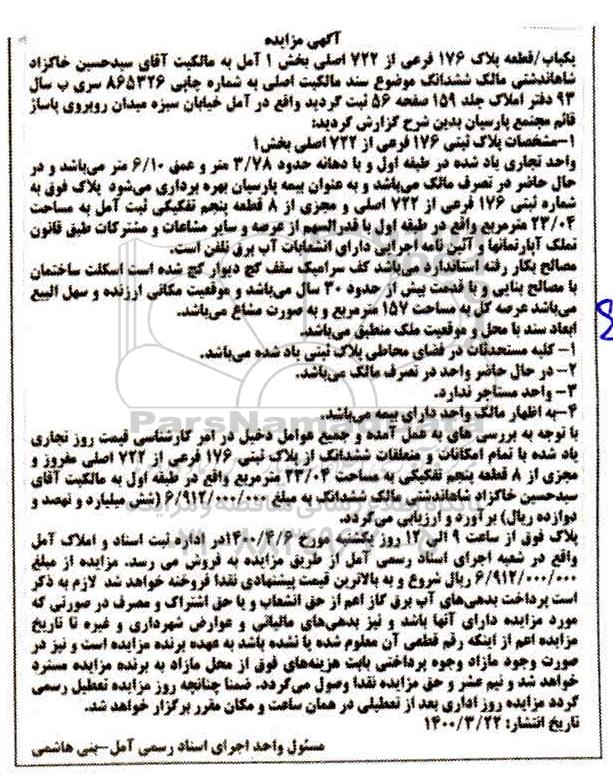 آگهی مزایده
یکباب/قطعه پلاک ۱۷۶ فرعی از ۷۲۲ اصلی بخش ۱ آمل به مالکیت آقای سیدحسین خاکزاد
شاهاندشتی مالک ششدانگ موضوع سند مالکیت اصلی به شماره چاپی ۸۶۵۳۲۶ سری ب سال
۹۳ دفتر املاک جلد ۱۵۹ صفحه ۵۶ ثبت گردید واقع در آمل خیابان سبزه میدان روبروی پاساژ
قائم مجتمع پارسیان بدین شرح گزارش گردید:
۱-مشخصات پلاک ثبتی ۱۷۶ فرعی از ۷۲۲ اصلی بخش۱
واحد تجاری یاد شده در طبقه اول و با دهانه حدود ۳/۷۸ متر و عمق ۶/۱۰ متر می‌باشد و در
حال حاضر در تصرف مالک می‌باشد و به عنوان بیمه پارسیان بهره برداری می‌شود پلاک فوق به
شماره ثبتی ۱۷۶ فرعی از ۷۲۲ اصلی و مجزی از ۸ قطعه پنجم تفکیکی ثبت آمل به مساحت
۲۳/۰۴ مترمربع واقع در طبقه اول با قدرالسهم از عرصه و سایر مشاعات و مشترکات طبق قانون
تملک آپارتمانها و آئین نامه اجرایی دارای انشعابات آب برق تلفن است.
مصالح بکار رفته استاندارد می‌باشد کف سرامیک سقف گچ دیوار گچ شده است اسکلت ساختمان
با مصالح بنایی و با قدمت بیش از حدود ۳۰ سال می‌باشد و موقعیت مکانی ارزنده و سهل البیع
می‌باشد عرصه کل به مساحت ۱۵۷ مترمربع و به صورت مشاع می‌باشد.
ابعاد سند با محل و موقعیت ملک منطبق می‌باشد.
۱- کلیه مستحدثات در فضای محاطی پلاک ثبتی یاد شده می‌باشد.
۲- در حال حاضر واحد در تصرف مالک می‌باشد.
۳- واحد مستاجر ندارد.
۴-به اظهار مالک واحد دارای بیمه می‌باشد.
با توجه به بررسی های به عمل آمده و جمیع عوامل دخیل در امر کارشناسی قیمت روز تجاری
یاد شده با تمام امکانات و متعلقات ششدانگ از پلاک ثبتی ۱۷۶ فرعی از ۷۲۲ اصلی مفروز و
مجزی از ۸ قطعه پنجم تفکیکی به مساحت ۲۳/۰۴ مترمربع واقع در طبقه اول به مالکیت آقای
سیدحسین خاکزاد شاهاندشتی مالک ششدانگ به مبلغ ۶/۹۱۲/۰۰۰/۰۰۰ (شش میلیارد و نهصد و
دوازده ریال) برآورد و ارزیابی می‌گردد.
پلاک فوق از ساعت ۹ الی ۱۲ روز یکشنبه مورخ ۱۴۰۰/۴/۶در اداره ثبت اسناد و املاک آمل
واقع در شعبه اجرای اسناد رسمی آمل از طریق مزایده به فروش می رسد. مزایده از مبلغ
۶/۹۱۲/۰۰۰/۰۰۰ ریال شروع و به بالاترین قیمت پیشنهادی نقدا فروخته خواهد شد لازم به ذکر
است پرداخت بدهی‌های آب برق گاز اعم از حق انشعاب و یا حق اشتراک و مصرف در صورتی که
مورد مزایده دارای آنها باشد و نیز بدهی‌های مالیاتی و عوارض شهرداری و غیره تا تاریخ
مزایده اعم از اینکه رقم قطعی آن معلوم شده یا نشده باشد به عهده برنده مزایده است و نیز در
صورت وجود مازاد وجوه پرداختی بابت هزینه‌های فوق از محل مازاد به برنده مزایده مسترد
خواهد شد و نیم عشر و حق مزایده نقدا وصول می‌گردد. ضمنا چنانچه روز مزایده تعطیل رسمی
گردد مزایده روز اداری بعد از تعطیلی در همان ساعت و مکان مقرر برگزار خواهد شد.
تاریخ انتشار: ۱۴۰۰/۳/۲۲
مسئول واحد اجرای اسناد رسمی آمل-بنی هاشمی
ParsNamadData